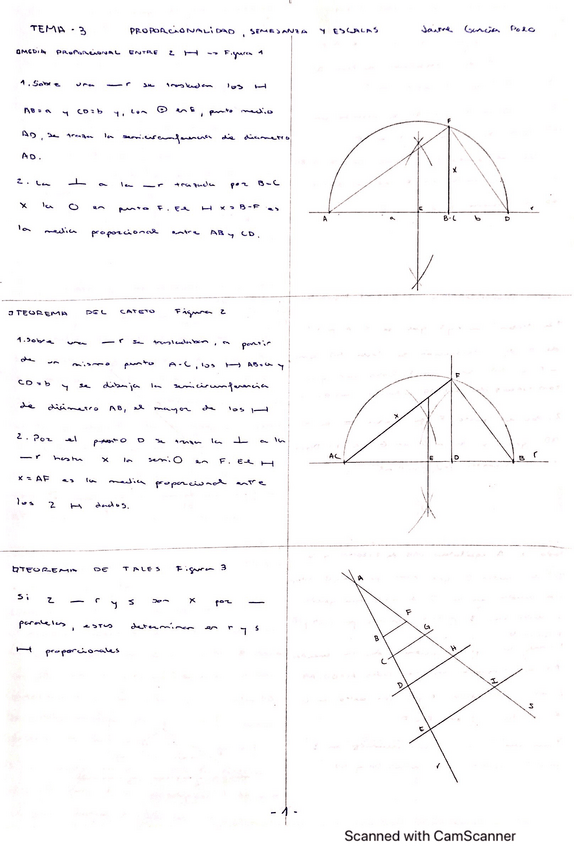 TEMA-3 PROPORCIONALIDAD, SEMEJANZA Y ESCALAS Jaime García Polo
MEDIA PROPORCIONAL ENTRE 2 ⊢⊣ → Figura 1
1. Sobre una — r se trasladan los ⊢⊣
AB=a y CD=b y, con ⊙ en E, punto medio
AD, se traza la semicircunferencia de diámetro
AD.
2. La ⊥ a la — r trazada por B-C
X la O en punto F. El ⊢⊣ x=B-F es
la media proporcional entre AB y CD.
F
x
A a E B-C b D r
TEOREMA DEL CATETO Figura 2
1. Sobre una — r se trasladan, a partir
de un mismo punto A-C, los ⊢⊣ AB=a y
CD=b y se dibuja la semicircunferencia
de diámetro AB, el mayor de los ⊢⊣
2. Por el punto D se traza la ⊥ a la
— r hasta X la semiO en F. El ⊢⊣
x=AF es la media proporcional entre
los 2 ⊢⊣ dados.
F
x
AC E D B r
TEOREMA DE TALES Figura 3
Si 2 — r y s son X por —
paralelas, estas determinan en r y s
⊢⊣ proporcionales
A
F
B G
C H
D I
E S
r
-1-
Scanned with CamScanner